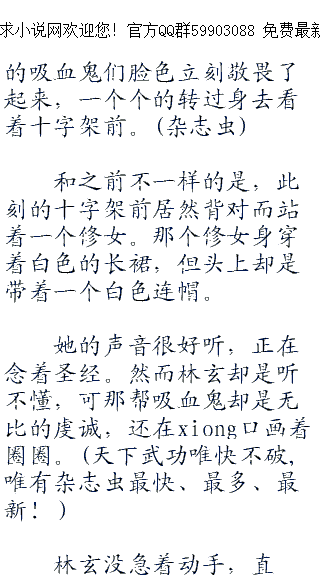 求小说网欢迎您！官方QQ群59903088 免费最新
的吸血鬼们脸色立刻敬畏了
起来，一个个的转过身去看
着十字架前。(杂志虫)
和之前不一样的是，此
刻的十字架前居然背对而站
着一个修女。那个修女身穿
着白色的长裙，但头上却是
带着一个白色连帽。
她的声音很好听，正在
念着圣经。然而林玄却是听
不懂，可那帮吸血鬼却是无
比的虔诚，还在xiong口画着
圈圈。(天下武功唯快不破,
唯有杂志虫最快、最多、最
新！)
林玄没急着动手，直